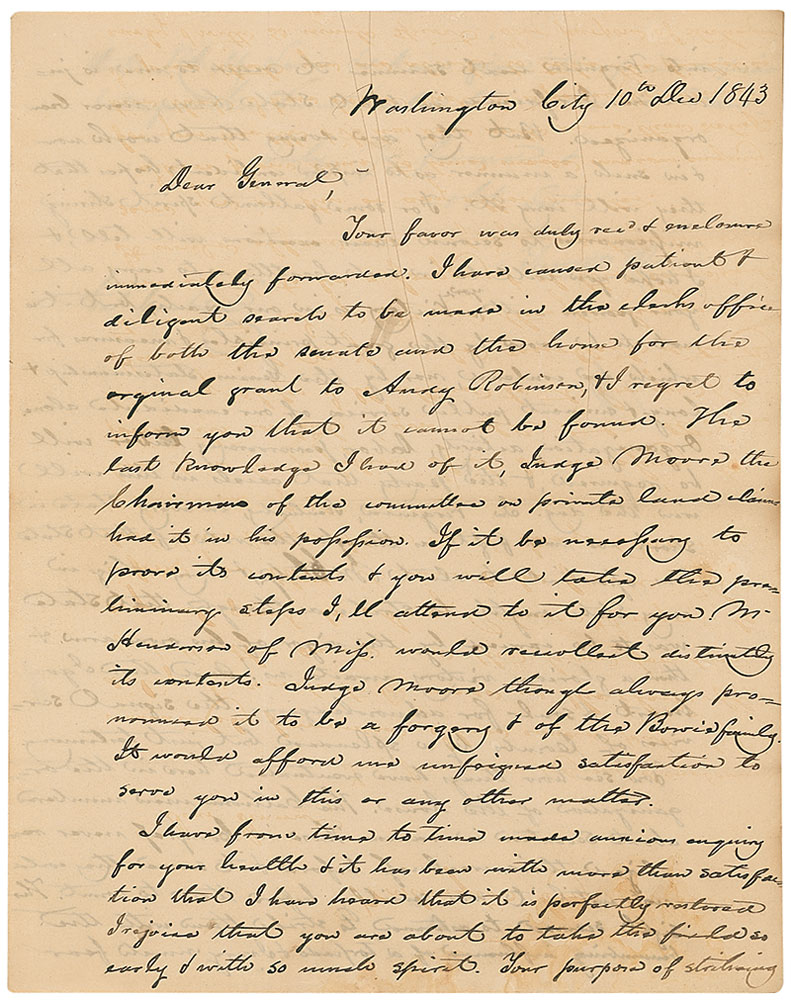 Washington City 10th Dec 1843
Dear General,
Your favor was duly recd & enclosure
immediately forwarded. I have caused patient &
diligent search to be made in the clerks office
of both the senate and the house for the
orginal grant to Andy Robinson, & I regret to
inform you that it cannot be found. The
last knowledge I had of it, Judge Moore the
Chairman of the committee on private land claims
had it in his possession. If it be necessary to
prove its contents & you will take the pre=
liminary steps I,ll attend to it for you. Mr
Henderson of Miss. would recollect distinctly
its contents. Judge Moore though always pro=
nounced it to be a forgery & of the Bowie family.
It would afford me unfeigned satisfaction to
serve you in this or any other matter.
I have from time to time made anxious enquiry
for your health & it has been with more than satisfac-
tion that I have heard that it is perfectly restored
I rejoice that you are about to take the field so
early & with so much spirit. Your purpose of striking